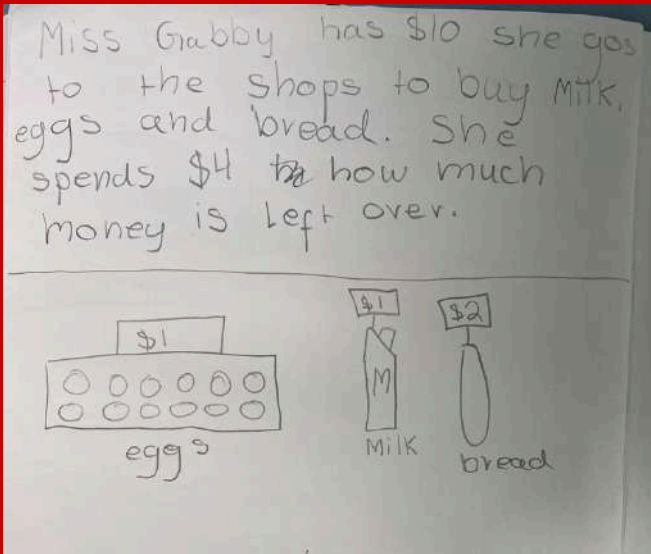 Miss Gabby has $10 she gos
to the shops to buy Milk,
eggs and bread. She
spends $4 how much
money is left over.
$1
$1
$2
M
eggs
Milk
bread